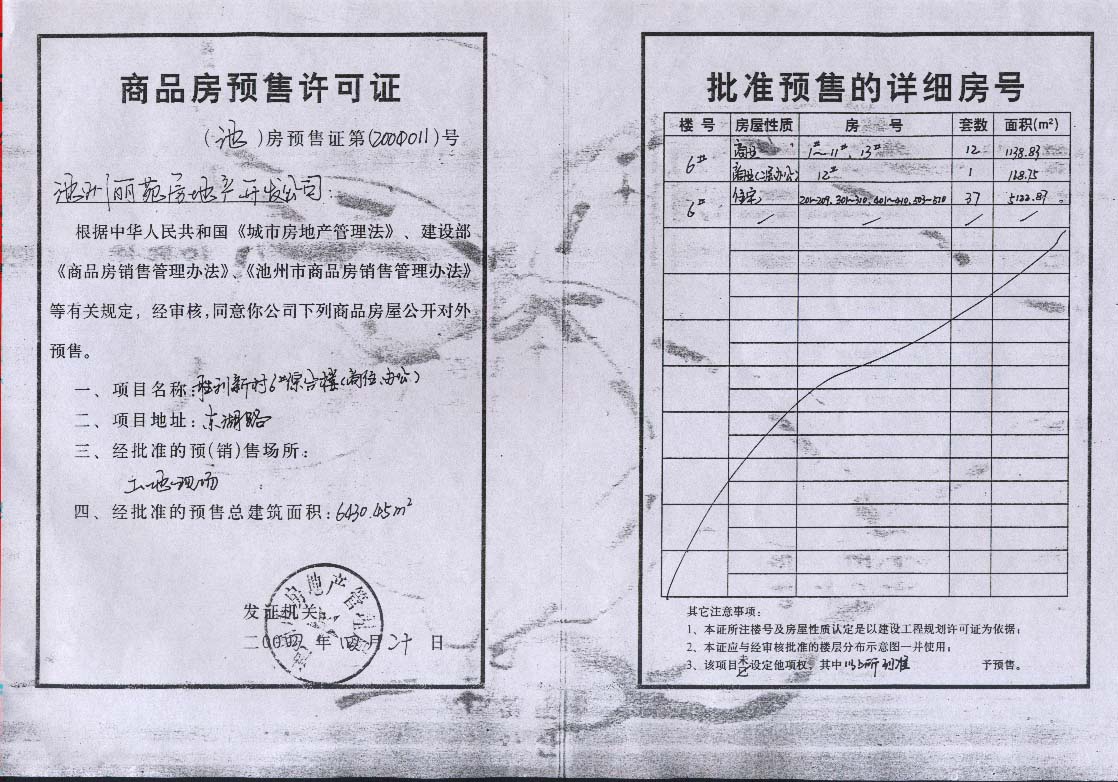 商品房预售许可证
(池)房预售证第(2004011)号
池州丽苑房地产开发公司:
根据中华人民共和国《城市房地产管理法》、建设部
《商品房销售管理办法》、《池州市商品房销售管理办法》
等有关规定，经审核,同意你公司下列商品房屋公开对外
预售。
一、项目名称:胜利新村6#综合楼(商住、办公)
二、项目地址:东湖路
三、经批准的预(销)售场所:
工地现场
四、经批准的预售总建筑面积:6430.45m²
房地产管理
发证机关:
二00四年四月二十日
批准预售的详细房号
楼号 房屋性质 房号 套数 面积(m²)
6# 商业 1#~11#、13# 12 1138.83
商业(二层办公) 12# 1 168.75
6# 住宅 201~209、301~310、401~410、503~510 37 5122.87。
其它注意事项:
1、本证所注楼号及房屋性质认定是以建设工程规划许可证为依据;
2、本证应与经审核批准的楼层分布示意图一并使用;
3、该项目 设定他项权。其中以上所列准 予预售。